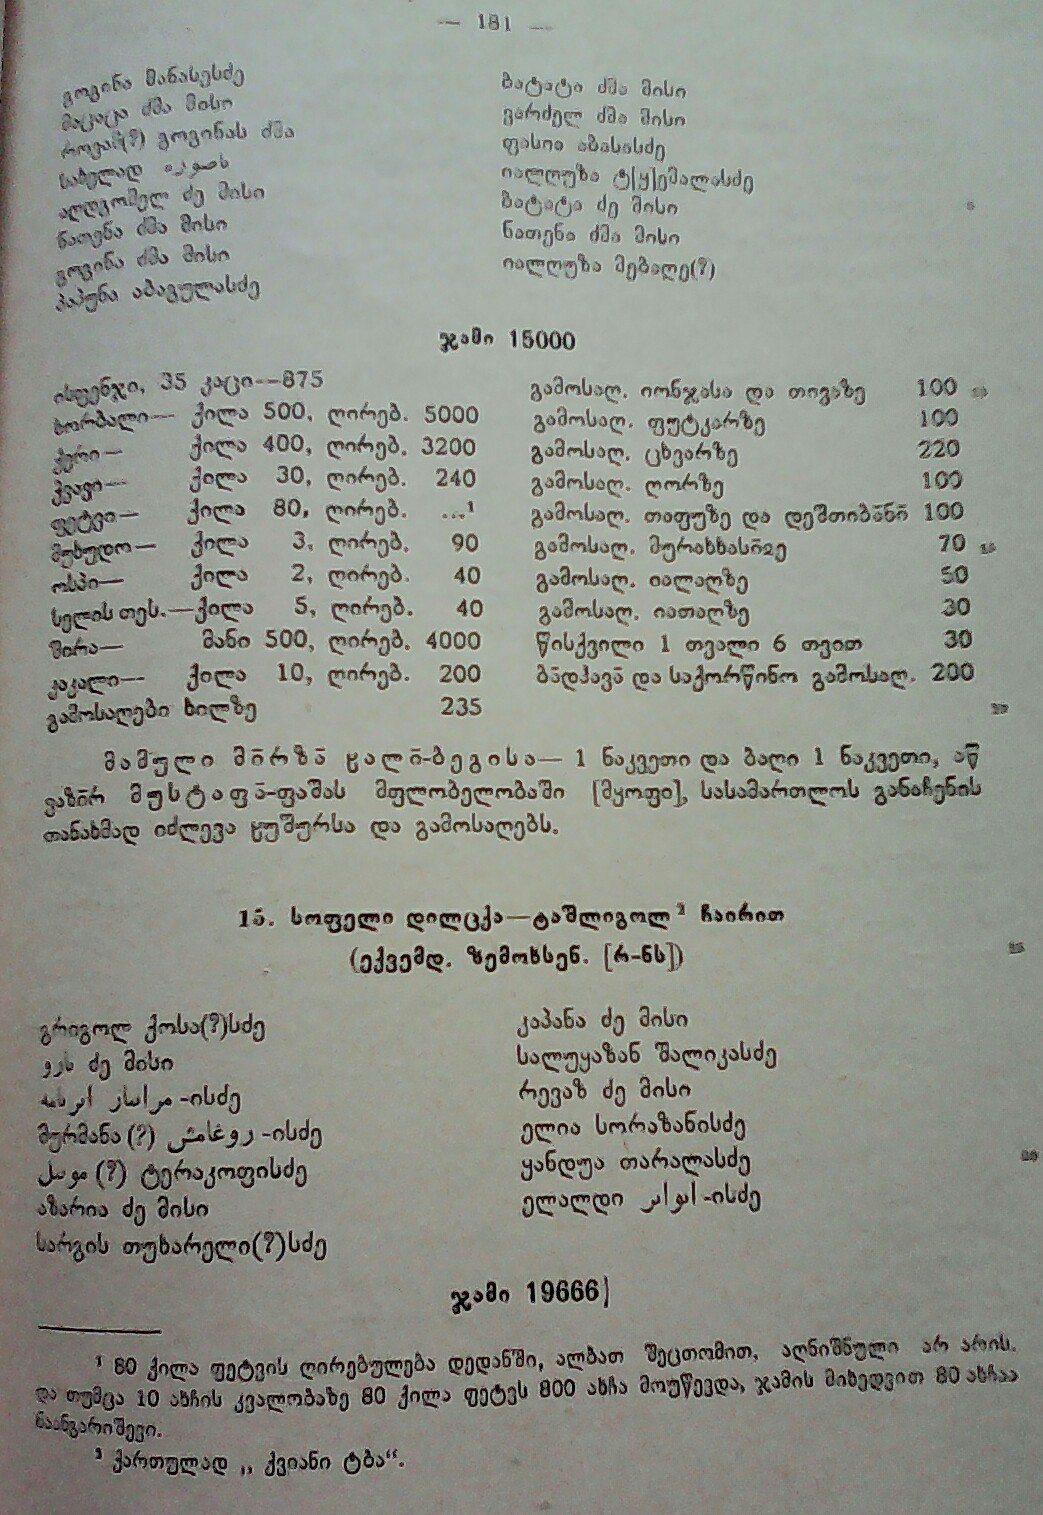 — 181 —
გოგინა მანასესძე
მაცაცა ძმა მისი
როვაშ(?) გოგინას ძმა
საბელად
აღდგომელ ძე მისი
ნათენა ძმა მისი
გოგინა ძმა მისი
პაპუნა აბაგულასძე
ბატატი ძმა მისი
ვარძელ ძმა მისი
ფასია აბასასძე
იალღუზა ტ[ყ]ემალასძე
ბატატა ძე მისი
ნათენა ძმა მისი
იალღუზა მებაღე(?)
ჯამი 15000
ისფენჯი, 35 კაცი--875
ბორბალი— ქილა 500, ღირებ. 5000
ქერი— ქილა 400, ღირებ. 3200
ჭვავი— ქილა 30, ღირებ. 240
ფეტვი— ქილა 80, ღირებ. ...¹
მუხუდო— ქილა 3, ღირებ. 90
ოსპი— ქილა 2, ღირებ. 40
სელის თეს.—ქილა 5, ღირებ. 40
შირა— მანი 500, ღირებ. 4000
კაკალი— ქილა 10, ღირებ. 200
გამოსაღები ხილზე 235
გამოსაღ. იონჯასა და თივაზე 100
გამოსაღ. ფუტკარზე 100
გამოსაღ. ცხვარზე 220
გამოსაღ. ღორზე 100
გამოსაღ. თაფუზე და დეშთიბა̄ნი̄ 100
გამოსაღ. მურახხასი̄ზე 70
გამოსაღ. იალაღზე 50
გამოსაღ. იათაღზე 30
წისქვილი 1 თვალი 6 თვით 30
ბა̄დჰავა̄ და საქორწინო გამოსაღ. 200
მამული მი̄რზა̄ ჸალი̄-ბეგისა— 1 ნაკვეთი და ბაღი 1 ნაკვეთი, აწ
ვაზი̄რ მუსტაფა̄-ფაშას მფლობელობაში [მყოფი], სასამართლოს განაჩენის
თანახმად იძლევა ჸუშურსა და გამოსაღებს.
15. სოფელი დილცქა—ტაშლიგოლ ² ჩაირით
(ექვემდ. ზემოხსენ. [რ-ნს])
გრიგოლ ქოსა(?)სძე
ძე მისი
-ისძე
მურმანა (?) روغامش -ისძე
(?) ტერაკოფისძე
აზარია ძე მისი
სარგის თუხარელი(?)სძე
კაპანა ძე მისი
სალუყაზან შალიკასძე
რევაზ ძე მისი
ელია სორაზანისძე
ყანდუა თარალასძე
ელალდი -ისძე
ჯამი 19666]
¹ 80 ქილა ფეტვის ღირებულება დედანში, ალბათ შეცთომით, აღნიშნული არ არის.
და თუმცა 10 ახჩის კვალობაზე 80 ქილა ფეტვს 800 ახჩა მოუწევდა, ჯამის მიხედვით 80 ახჩაა
ნაანგარიშევი.
² ქართულად „ ქვიანი ტბა“.